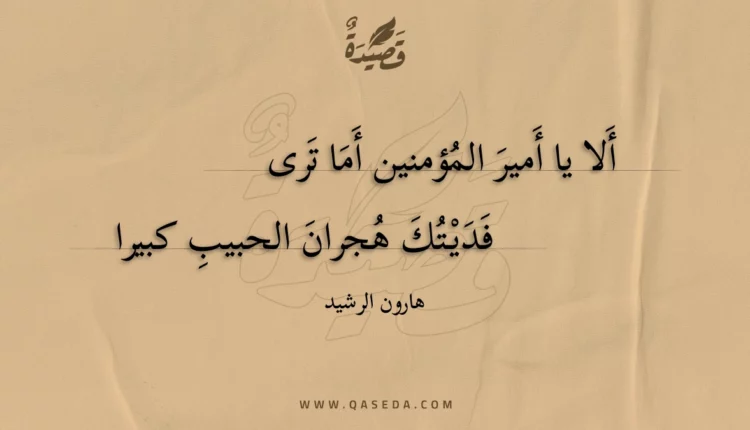 قَصِيْدَةٌ
أَلا يا أَميرَ المُؤمنين أَمَا تَرى
فَدَيْتُكَ هُجرانَ الحبيبِ كبيرا
هارون الرشيد
WWW.QASEDA.COM